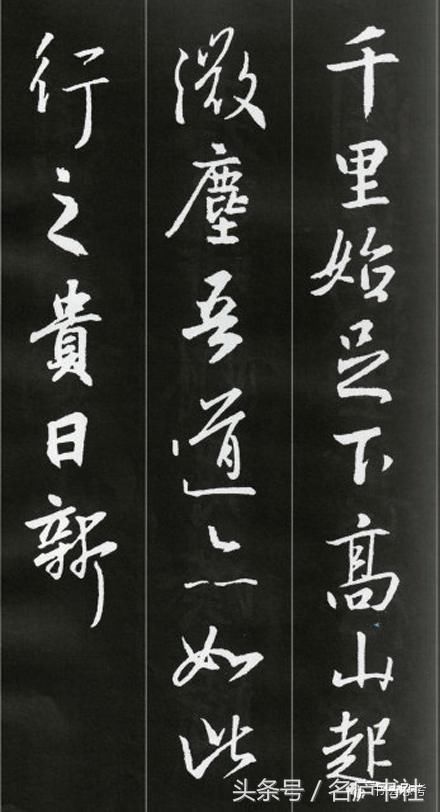 千里始足下高山起
微塵吾道亦如此
行之貴日新
头条号/名店书社